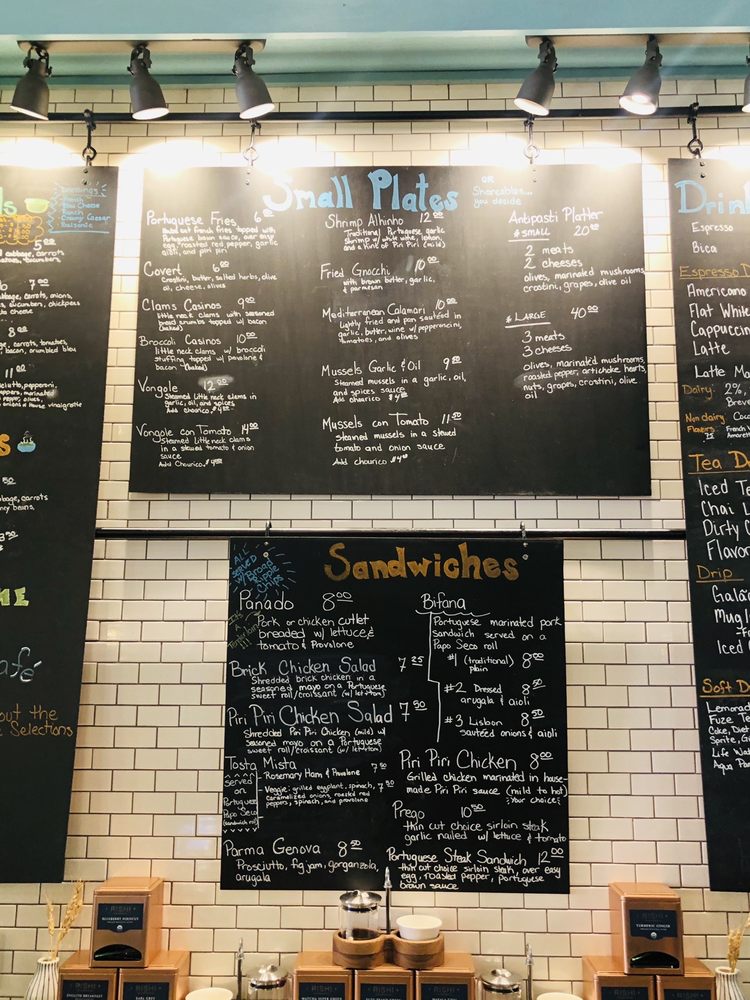 Small Plates
OR
Shareables...
you decide
Portuguese Fries 6.00
Hand cut french fries topped with
Portuguese brown sauce, over easy
egg, roasted red pepper, garlic
aioli, and piri piri
Covert 6.00
Crostini, butter, salted herbs, olive
oil, cheese, olives
Clams Casinos 9.00
little neck clams with seasoned
bread crumbs topped w/ bacon
(baked)
Broccoli Casinos 10.00
little neck clams w/ broccoli
stuffing topped w/ provolone &
bacon (baked)
Vongole 12.00
Steamed Little neck clams in
garlic, oil, and spices
Add chourico $4.00
Vongole con Tomato 14.00
Steamed Little neck clams
in a stewed tomato & onion
sauce
Add Chourico $4.00
Shrimp Alhinho 12.00
Traditional Portuguese garlic
Shrimp w/ white wine, lemon,
and a hint of Piri Piri (mild)
Fried Gnocchi 10.00
with brown butter, garlic,
& parmesan
Mediterranean Calamari 10.00
Lightly fried and pan sautéed in
garlic, butter, wine w/ pepperoncini,
tomatoes, and olives
Mussels Garlic & Oil 9.50
Steamed mussels in a garlic, oil,
and spices sauce
Add chourico $4.00
Mussels con Tomato 11.50
steamed mussels in a stewed
tomato and onion sauce
Add chourico $4.00
Antipasti Platter
* SMALL 20.00
2 meats
2 cheeses
olives, marinated mushrooms,
crostini, grapes, olive oil
* LARGE 40.00
3 meats
3 cheeses
olives, marinated mushrooms,
roasted pepper, artichoke hearts,
nuts, grapes, crostini, olive
oil
ALL
SERVED
w/ Broad
Ripple
Chips
Sandwiches
Panado 8.00
Pork or chicken cutlet
breaded w/ lettuce,
tomato & Provolone
Brick Chicken Salad 7.25
Shredded brick chicken in a
seasoned mayo on a Portuguese
sweet roll/croissant (w/ lettuce)
Piri Piri Chicken Salad 7.50
Shredded Piri Piri Chicken (mild) w/
Seasoned mayo on a Portuguese
sweet roll/croissant (w/ lettuce)
Tosta Mista
served
on
Portuguese
Papo Seco
(sandwich roll)
- Rosemary Ham & Provolone 7.50
- Veggie: grilled eggplant, spinach, 7.50
caramelized onions, roasted red
peppers, spinach, and provolone
Parma Genova 8.50
Prosciutto, fig jam, gorganzola,
arugala
Bifana
Portuguese marinated pork
sandwich served on a
Papo Seco roll
#1 (traditional) 8.00
plain
#2 Dressed 8.50
arugala & aioli
#3 Lisbon 8.50
sautéed onions & aioli
Piri Piri Chicken 8.00
Grilled chicken marinated in house-
made Piri Piri sauce (mild to hot)
(your choice)
Prego 10.50
thin cut choice sirloin steak
garlic nailed w/ lettuce & tomato
Portuguese Steak Sandwich 12.00
thin cut choice sirloin steak, over easy
egg, roasted pepper, portuguese
brown sauce
Dressings
Ranch
Creamy Caesar
Balsamic
5.00
7.00
8.00
11.00
afé
out the
Selections
Drin
Espresso
Bica
Espresso D
Americano
Flat White
Cappuccin
Latte
Latte Mo
Dairy: 2%,
Breve
Non dairy
Flavors
Tea D
Iced Te
Chai L
Dirty C
Flavor
Drip
Galã
Mug
Iced C
Soft D
Lemonad
Fuze Te
Coke, Diet
Sprite, Gi
Life Wat
Aqua Pan
RISHI
BLUEBERRY HIBISCUS
RISHI
TURMERIC GINGER
RISHI
ENGLISH BREAKFAST
RISHI
EARL GREY
RISHI
RISHI
RISHI